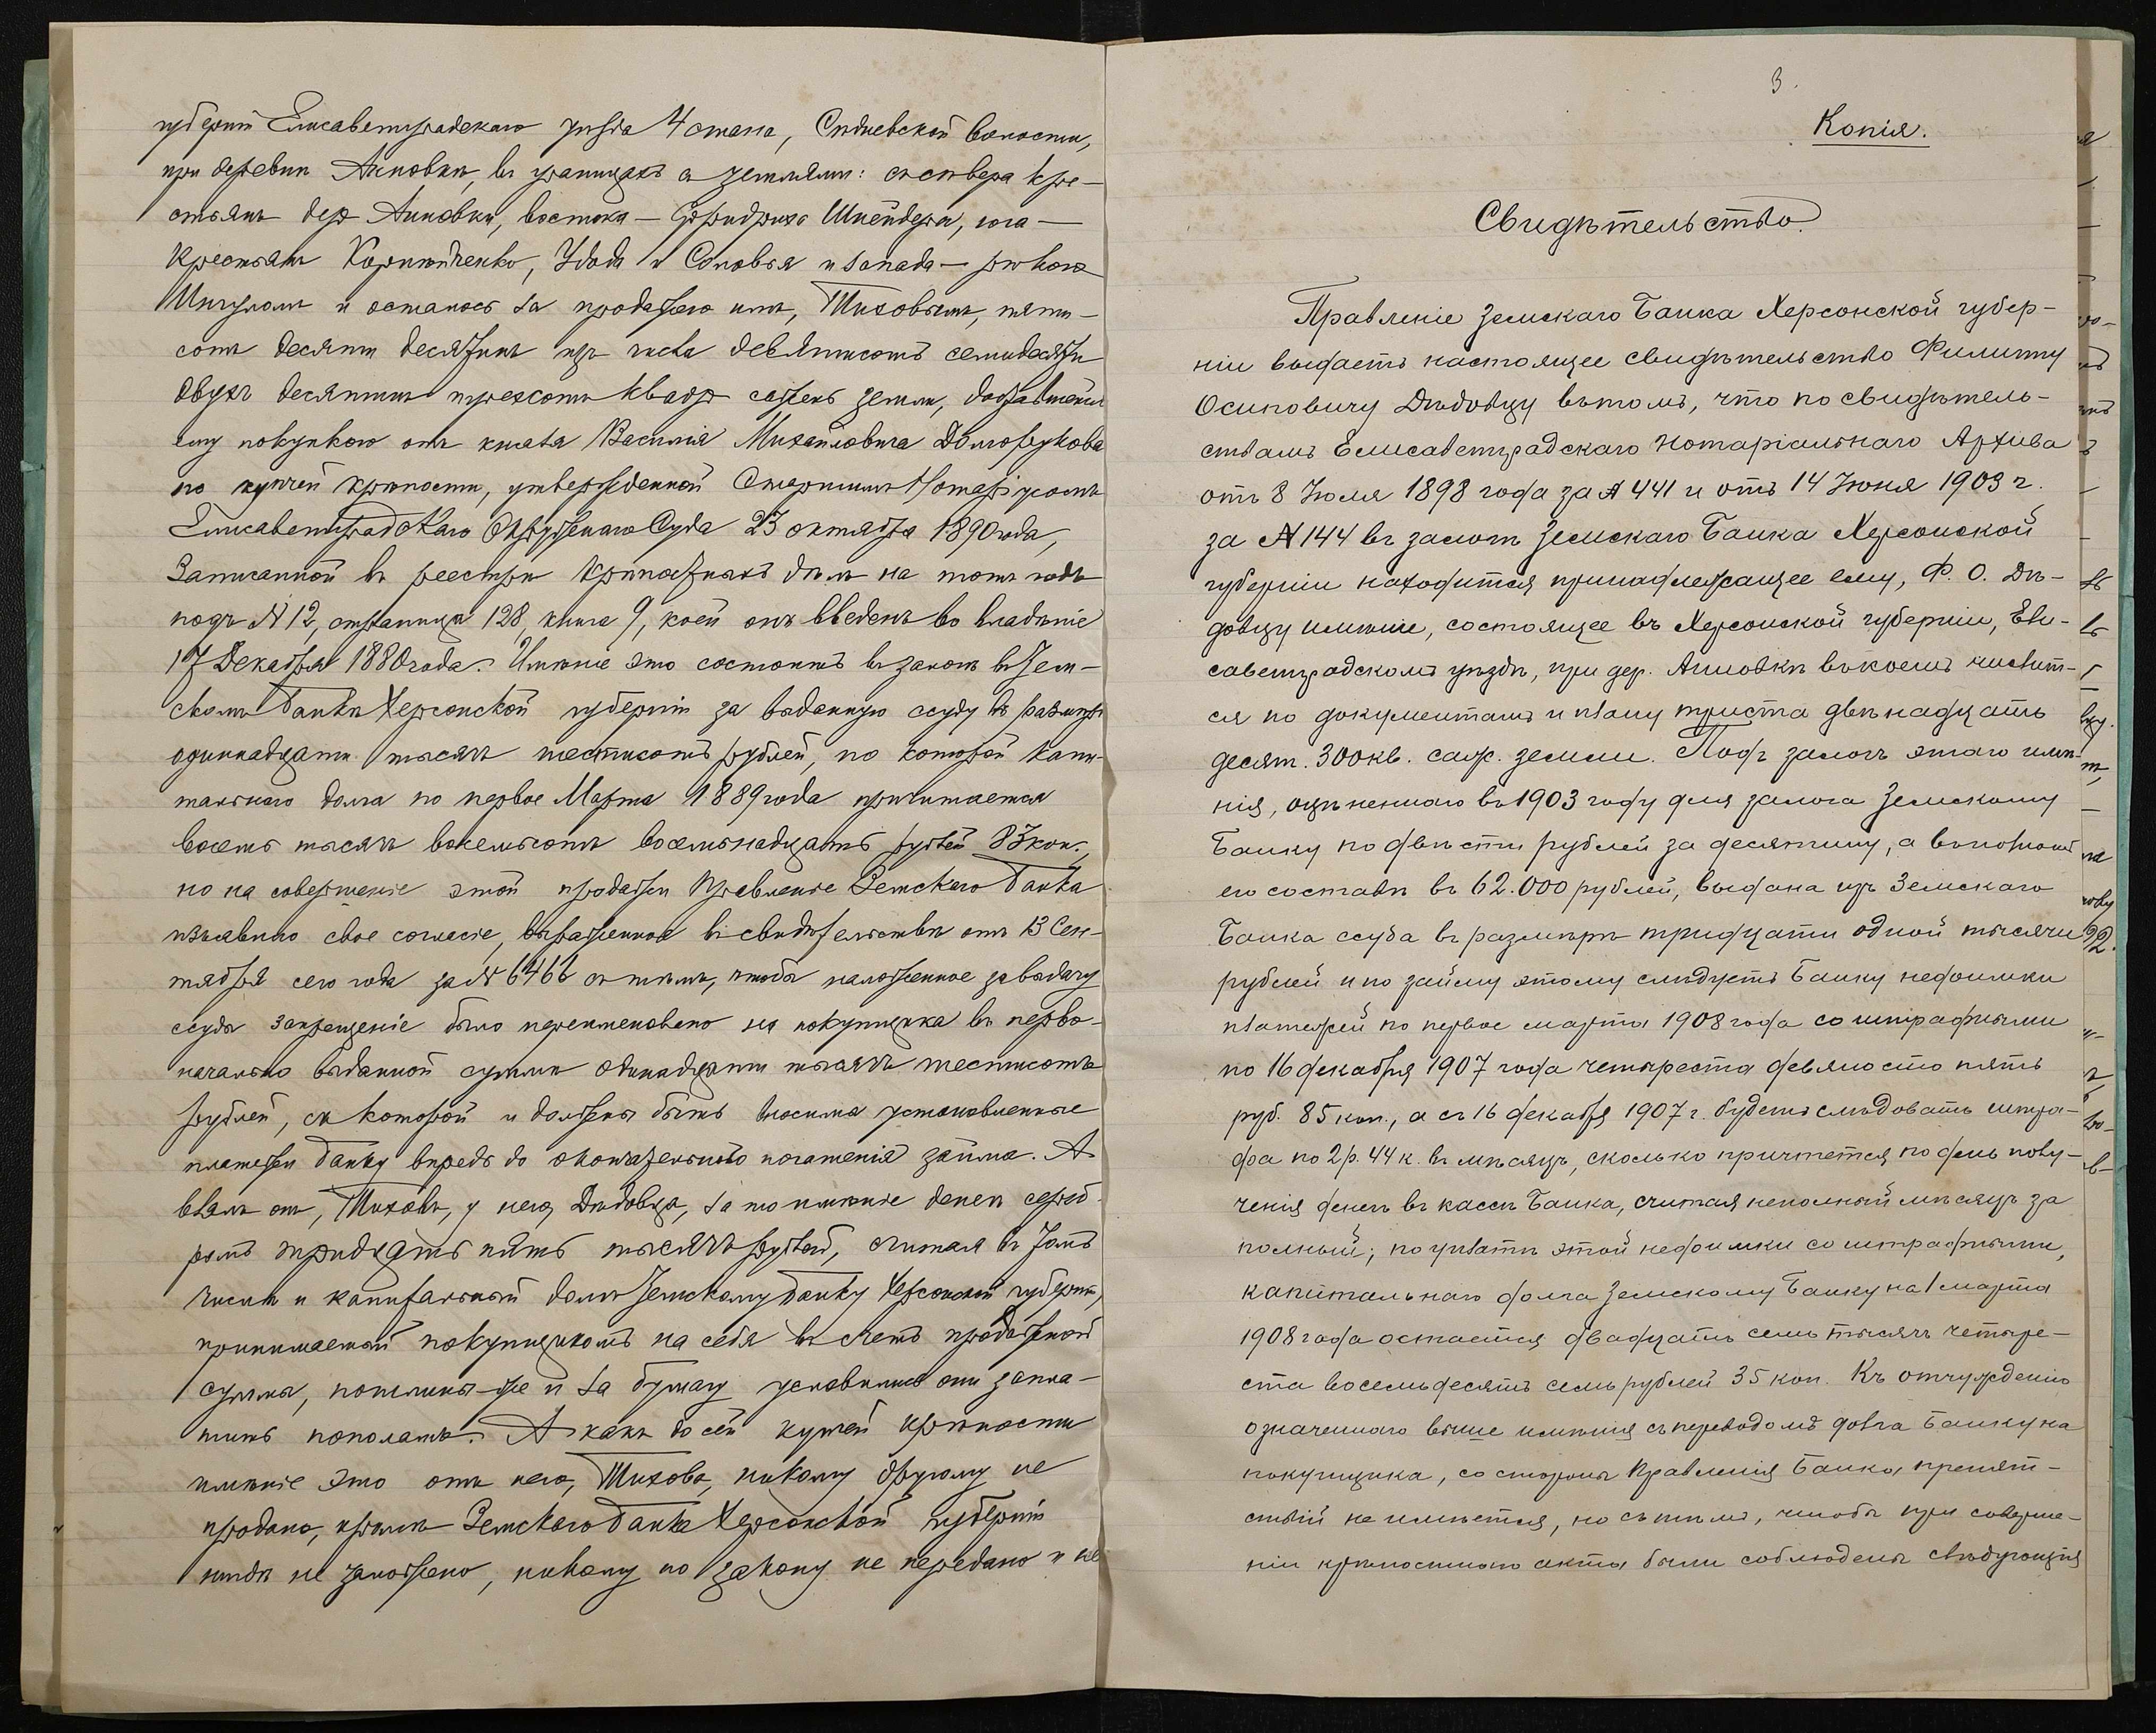 губерніи Елисаветградскаго уѣзда 4 стана, Сидневской волости,
при деревнѣ Анновкѣ, въ границахъ съ землями: съ сѣвера кре-
стьянъ дер. Анновки, востока — Фридриха Шнейдера, юга —
крестьянъ Корнійченко, Удода и Соловья и запада — рѣкою
Ингуломъ и осталось за продажею имъ, Тиховымъ, пяти-
сотъ десяти десятинъ изъ числа девятисотъ семидесяти
двухъ десятинъ трехсотъ квадр. сажень земли, доставшейся
ему покупкою отъ князя Василія Михайловича Долгорукова
по купчей крѣпости, утвержденной Старшимъ Нотаріусомъ
Елисаветградскаго Окружнаго Суда 23 октября 1890 года,
записанной въ реестрѣ крѣпостныхъ дѣлъ на тотъ годъ
подъ № 12, страница 128, книга 9, коей онъ введенъ во владѣніе
17 Декабря 1880 года. Имѣніе это состоитъ въ залогѣ въ Зем-
скомъ Банкѣ Херсонской губерніи за выданную ссуду въ размѣрѣ
одиннадцати тысячъ шестисотъ рублей, по которой капи-
тальнаго долга по первое Марта 1889 года причитается
восемь тысячъ восемьсотъ восемьнадцать рублей 83 коп.,
но на совершеніе этой продажи Правленіе Земскаго Банка
изъявило свое согласіе, выраженное въ свидѣтельствѣ отъ 13 Сен-
тября сего года за № 6466 съ тѣмъ, чтобы наложенное за выдачу
ссуды запрещеніе было переименовано на покупщика въ перво-
начально выданной суммѣ одинадцати тысячъ шестисотъ
рублей, съ которой и должны быть вносимы установленные
платежи Банку впредь до окончательнаго погашенія займа. А
взялъ онъ, Тиховъ, у него, Дѣдовца, за то имѣніе денегъ сереб-
ромъ тридцать пять тысячъ рублей, считая въ томъ
числѣ и капитальный долгъ Земскому Банку Херсонской губерніи,
принимаемый покупщикомъ на себя въ счетъ продажной
суммы, пошлины-же и за бумагу условились они запла-
тить пополамъ. А какъ до сей купчей крѣпости
имѣніе это отъ него, Тихова, никому другому не
продано, кромѣ Земскаго Банка Херсонской губерніи
нигдѣ не заложено, никому по закону не передано и не
3.
Копія.
Свидѣтельство.
Правленіе Земскаго Банка Херсонской губер-
ніи выдаетъ настоящее свидѣтельство Филиппу
Осиповичу Дѣдовцу въ томъ, что по свидѣтель-
ствамъ Елисаветградскаго Нотаріальнаго Архива
отъ 8 Іюля 1898 года за № 441 и отъ 14 Іюня 1903 г.
за № 144 въ залогѣ Земскаго Банка Херсонской
губерніи находится принадлежащее ему, Ф. О. Дѣ-
довцу имѣніе, состоящее въ Херсонской губерніи, Ели-
саветградскомъ уѣздѣ, при дер. Анновкѣ въ коемъ числит-
ся по документамъ и плану триста двѣнадцать
десят. 300 кв. саж. земли. Подъ залогъ этого имѣ-
нія, оцѣненнаго въ 1903 году для залога Земскому
Банку по двѣсти рублей за десятину, а въ полномъ
его составѣ въ 62.000 рублей, выдана изъ Земскаго
Банка ссуда въ размѣрѣ тридцати одной тысячи
рублей и по займу этому слѣдуетъ Банку недоимки
платежей по первое марта 1908 года со штрафными
по 16 декабря 1907 года четыреста девяносто пять
руб. 85 коп., а съ 16 декабря 1907 г. будетъ слѣдовать штра-
фа по 2 р. 44 к. въ мѣсяцъ, сколько причтется по день полу-
ченія денегъ въ кассѣ Банка, считая неполный мѣсяцъ за
полный; по уплатѣ этой недоимки со штрафными,
капитальнаго долга Земскому Банку на 1 марта
1908 года остается двадцать семь тысячъ четыре-
ста восемьдесятъ семь рублей 35 коп. Къ отчужденію
означеннаго выше имѣнія съ переводомъ долга Банку на
покупщика, со стороны Правленія Банка, препят-
ствій не имѣется, но съ тѣмъ, чтобы при соверше-
ніи крѣпостнаго акта были соблюдены слѣдующія